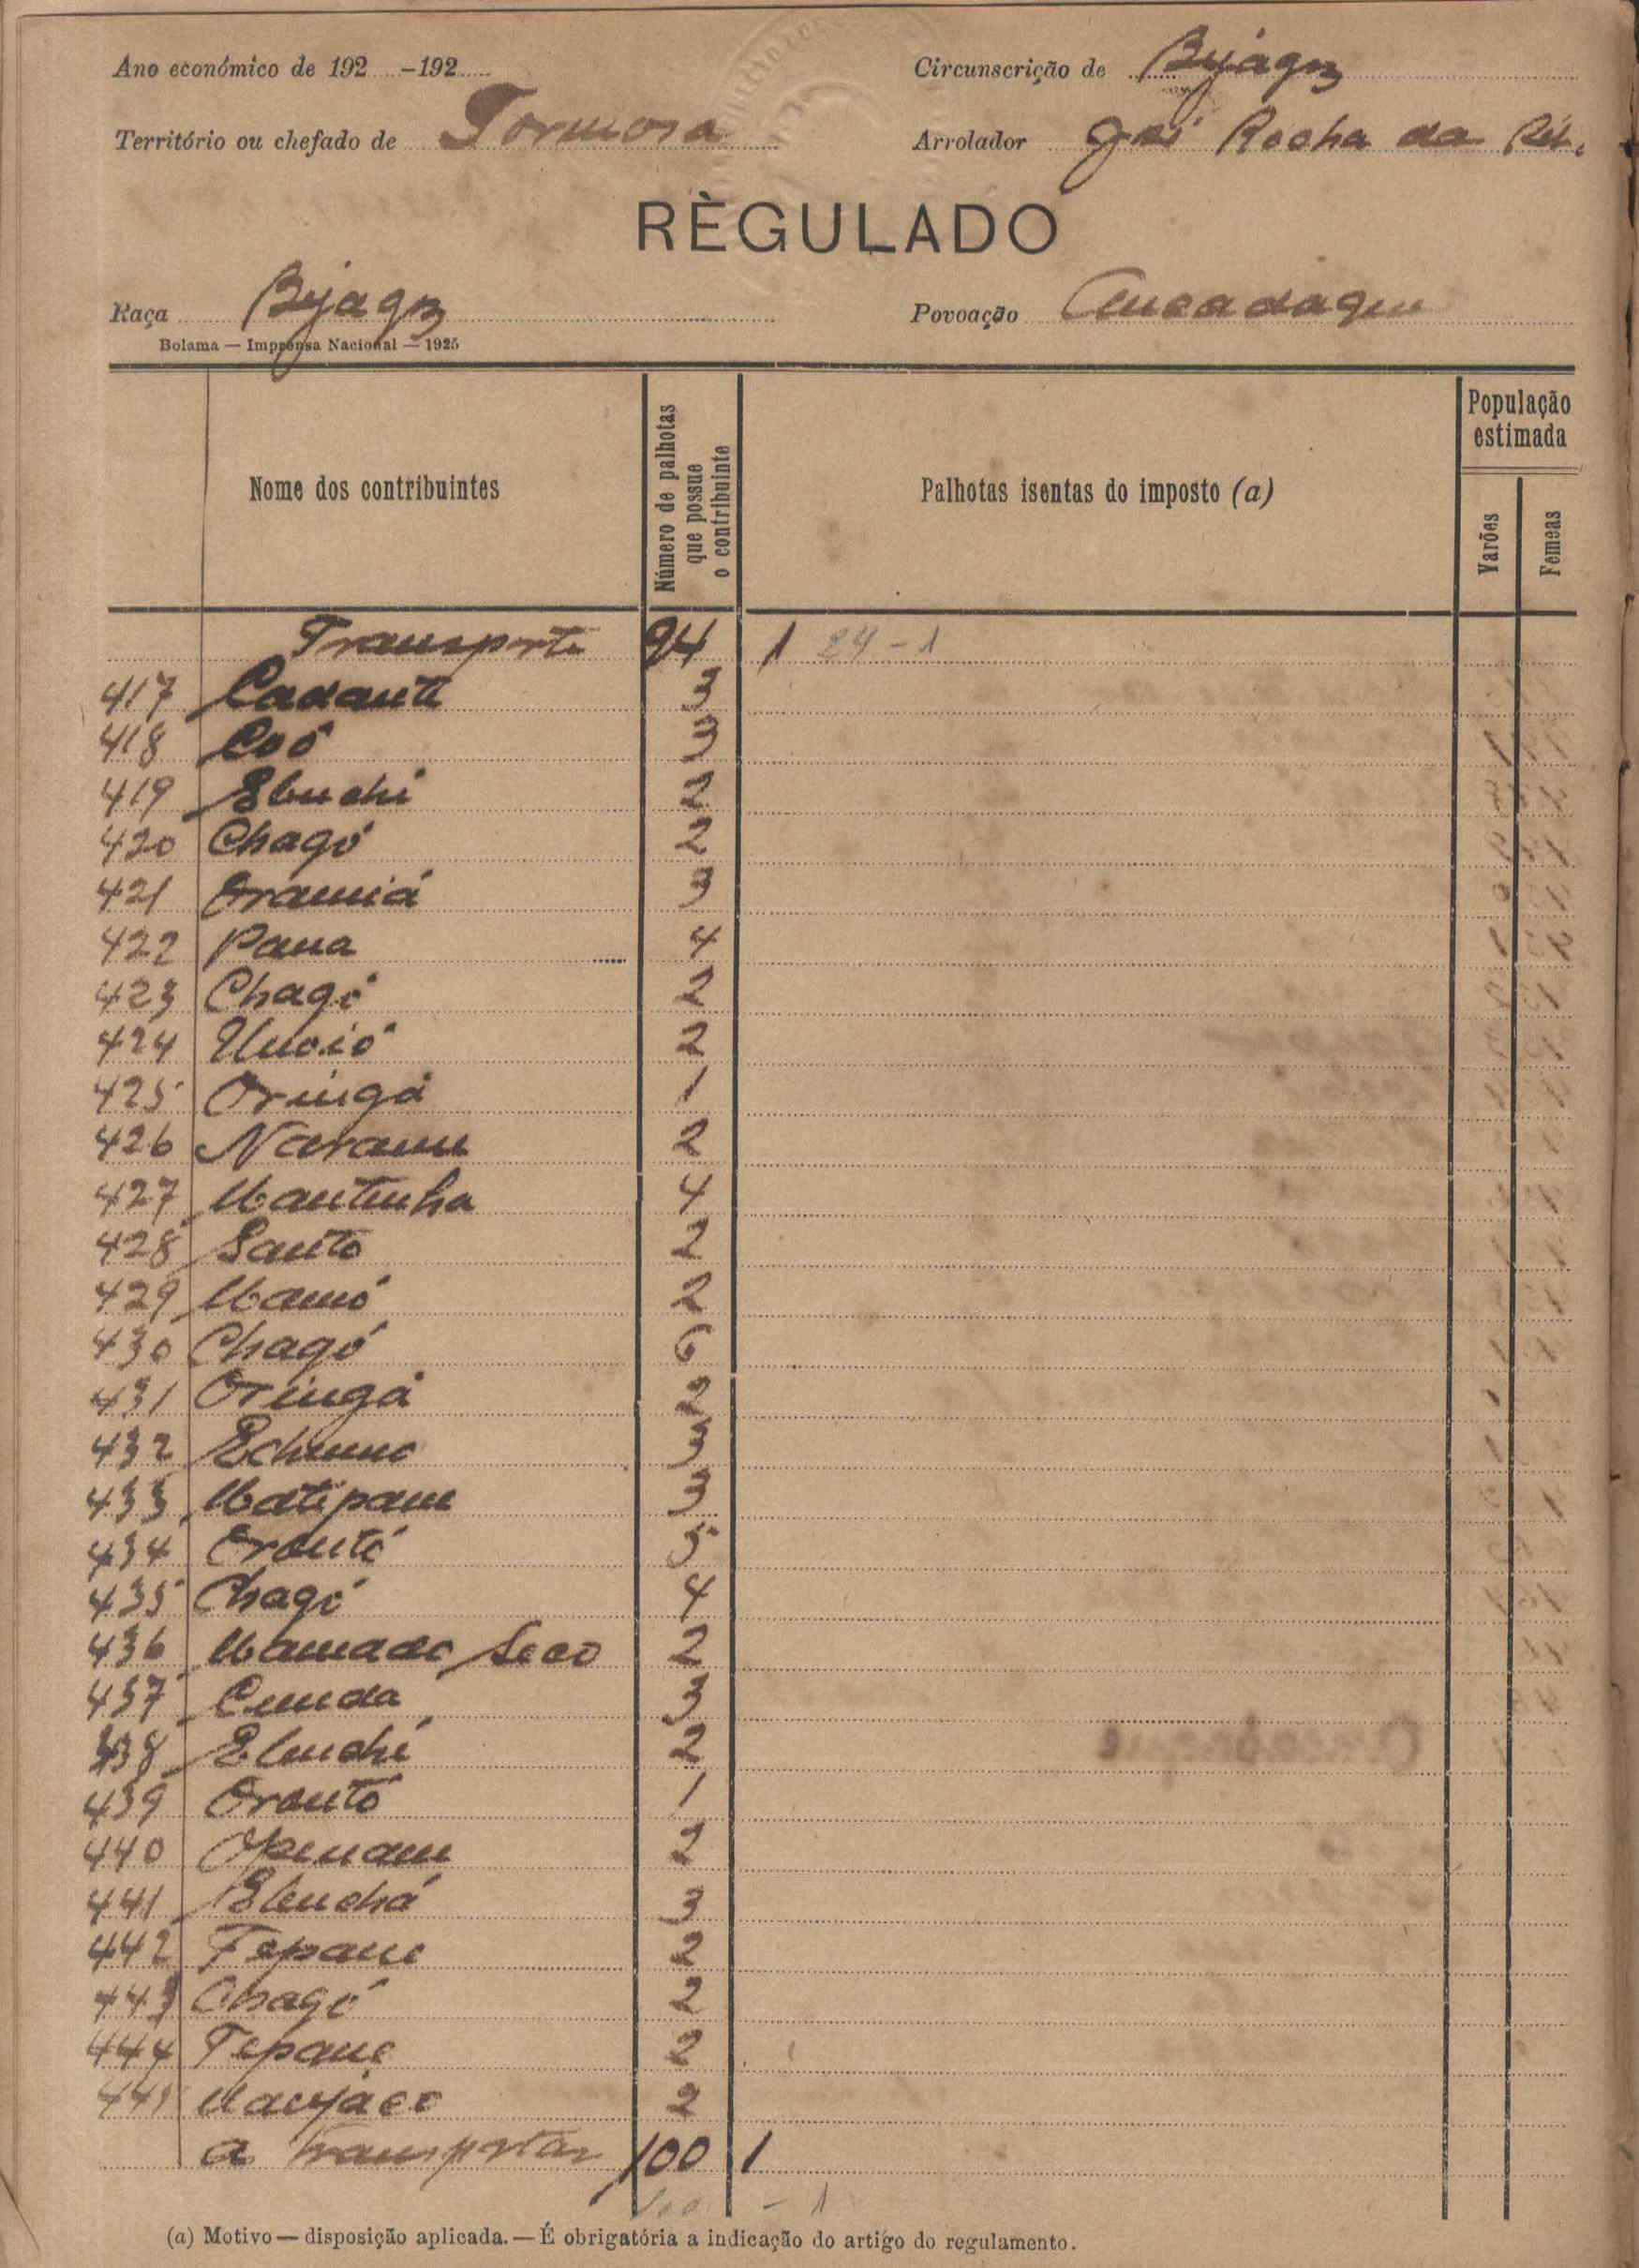 Ano económico de 192 -192
Circunscrição de Bijagoz
Território ou chefado de Formosa
Arrolador José Rocha da
RÈGULADO
Raça Bijagoz
Povoação Ancadaque
Bolama — Imprensa Nacional — 1925
Nome dos contribuintes
Número de palhotas que possue o contribuinte
Palhotas isentas do imposto (a)
População estimada
Varões
Femeas
Transporte 24 1 24 - 1
417 Cadante 3
418 Coó 3
419 Ebuchi 2
420 Chagó 2
421 Oramiá 3
422 Pana 4
423 Chagó 2
424 2
425 Oringá 1
426 Narame 2
427 Mantenha 4
428 Santo 2
429 Mamó 2
430 Chagó 6
431 Oringá 2
432 3
433 Matipane 3
434 Orontó 5
435 Chagó 4
436 Mamado Seco 2
437 Cunda 3
438 Ebuchi 2
439 Orontó 1
440 2
441 Ebuchá 3
442 Tepane 2
443 Chagó 2
444 Tepane 2
445 Manjaco 2
a transportar 100 1
100 - 1
(a) Motivo — disposição aplicada. — É obrigatória a indicação do artigo do regulamento.